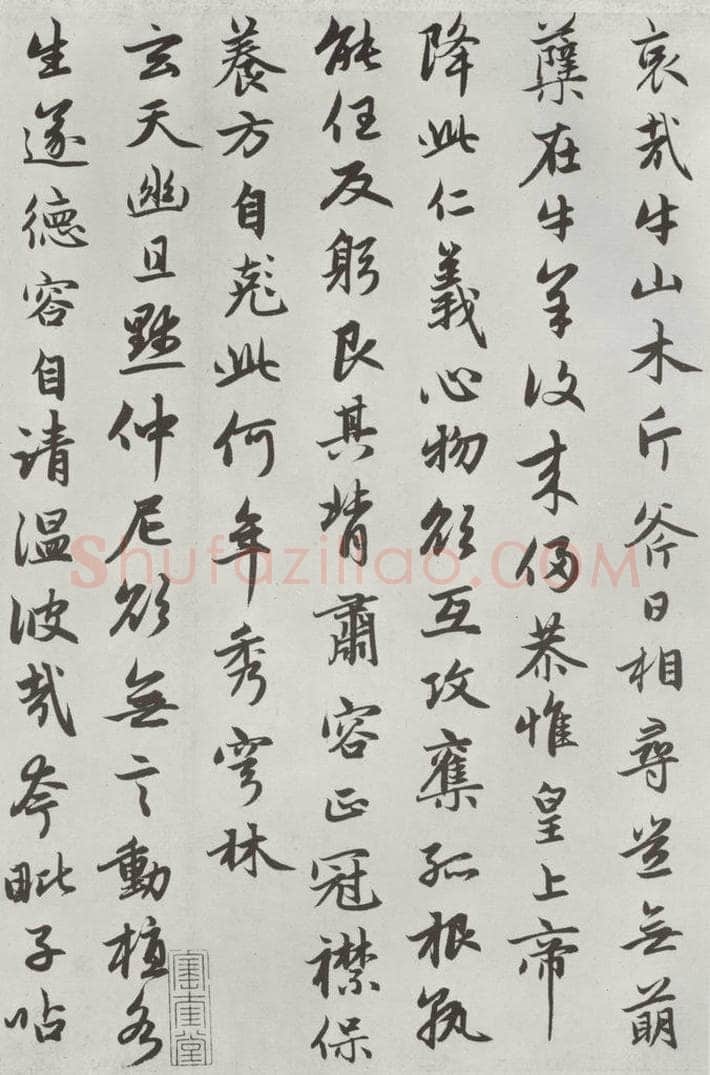 哀哉牛山木斤斧日相尋豈無萌
蘖在牛羊復来侵恭惟皇上帝
降此仁義心物欲互攻奪孤根孰
能任反躬艮其背肅容正冠襟保
養方自彪此何年秀穹林
玄天幽且默仲尼欲無言動植各
生遂德容自清温彼哉夸毗子呫
Shufaziliao.COM